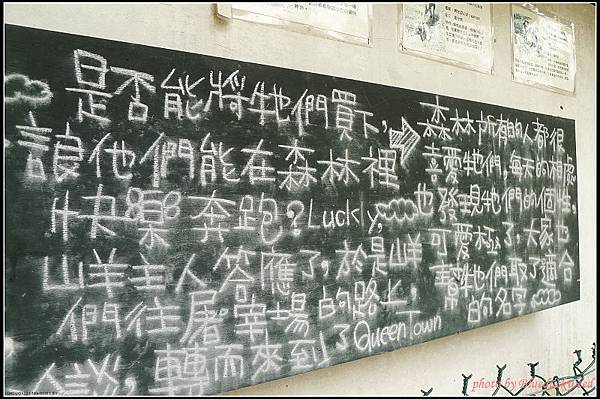 是否能將牠們買下,
讓他們能在森林裡
快樂奔跑?Lucky,
山羊主人答應了,於是山羊
們往屠宰場的路上
轉而來到了QueenTown
森林所有的人都很
喜愛牠們,每天的相處
也發現牠們的個性
可愛極了,大家也
幫牠們取了適合
的名字
photo by